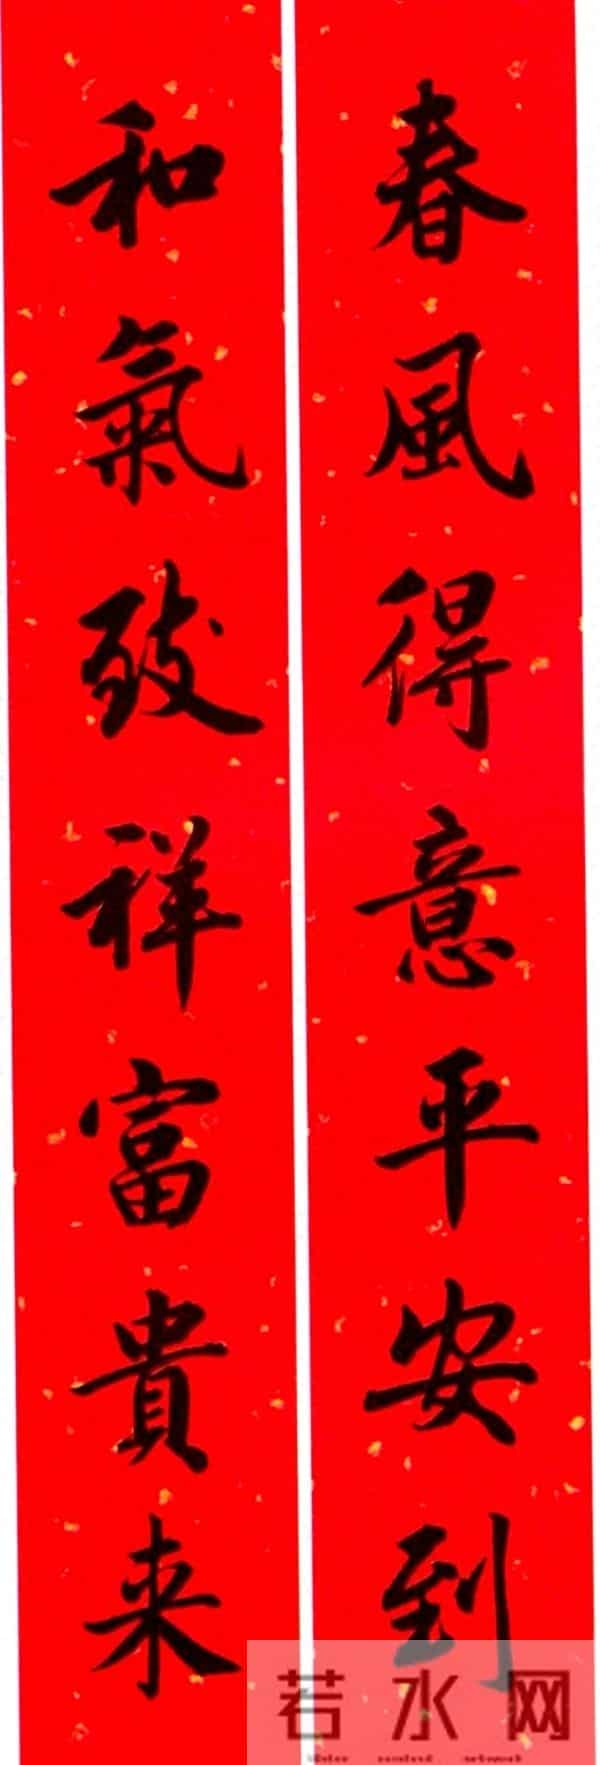 春風得意平安到
和氣致祥富貴来
若水网